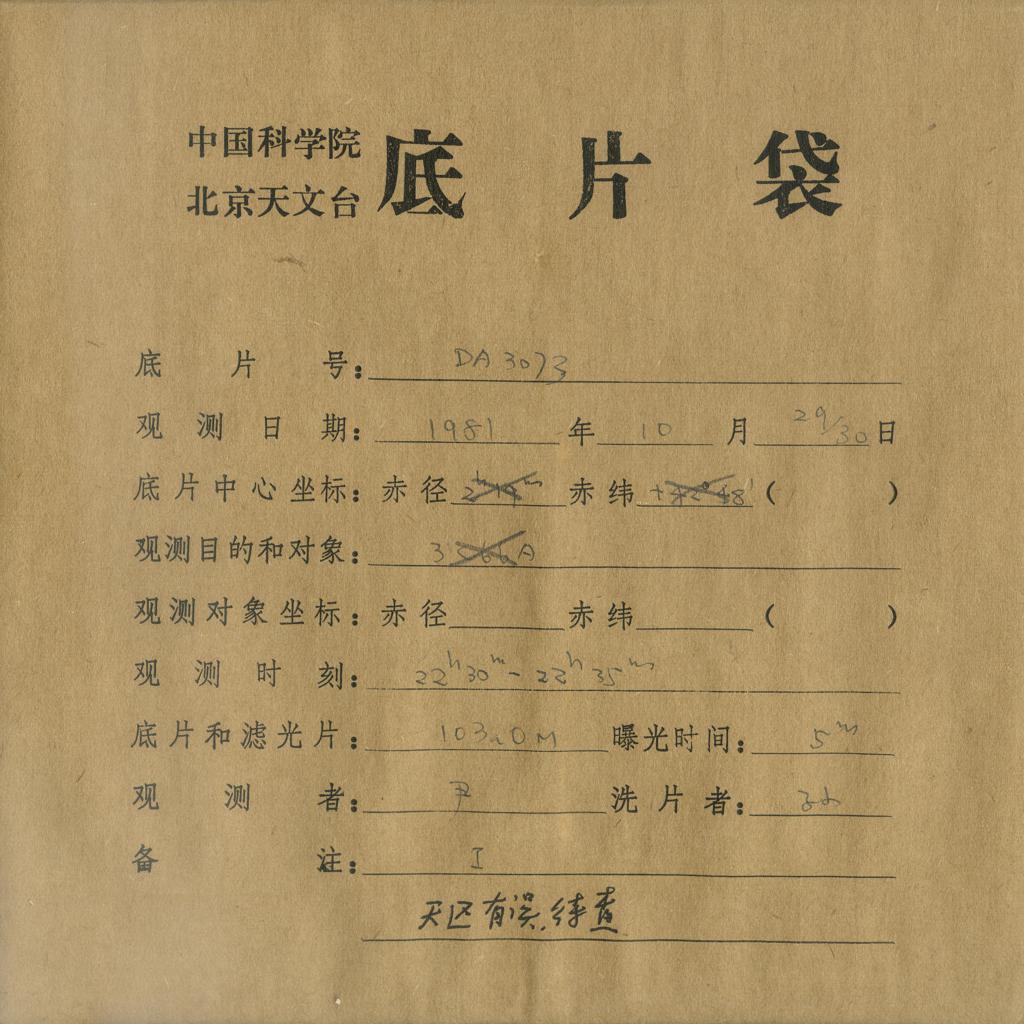 中国科学院
北京天文台 底片袋
底片号: DA 3073
观测日期: 1981 年 10 月 29/30 日
底片中心坐标: 赤径 赤纬 ( )
观测目的和对象:
观测对象坐标: 赤径 赤纬 ( )
观测时刻: 22h30m - 22h35m
底片和滤光片: 曝光时间: 5m
观测者: 尹 洗片者: 孙
备注: I
天区有误,待查